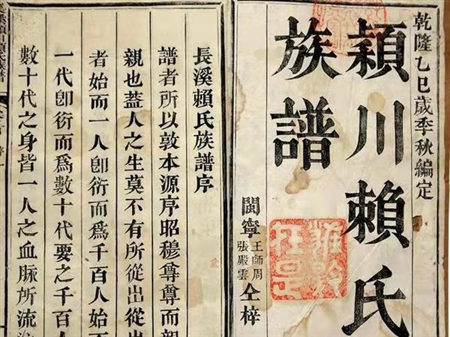 乾隆乙巳歲季秋編定
穎川賴氏
族譜
閩寧
王師周
張殿雲
仝梓
長溪賴氏族譜序
譜者所以敦本源序昭穆尊尊而親
親也蓋人之生莫不有所從出從
者始而一人卽衍而爲千百人始
一代卽衍而爲數十代要之千百人
數十代之身皆一人之血脈所流